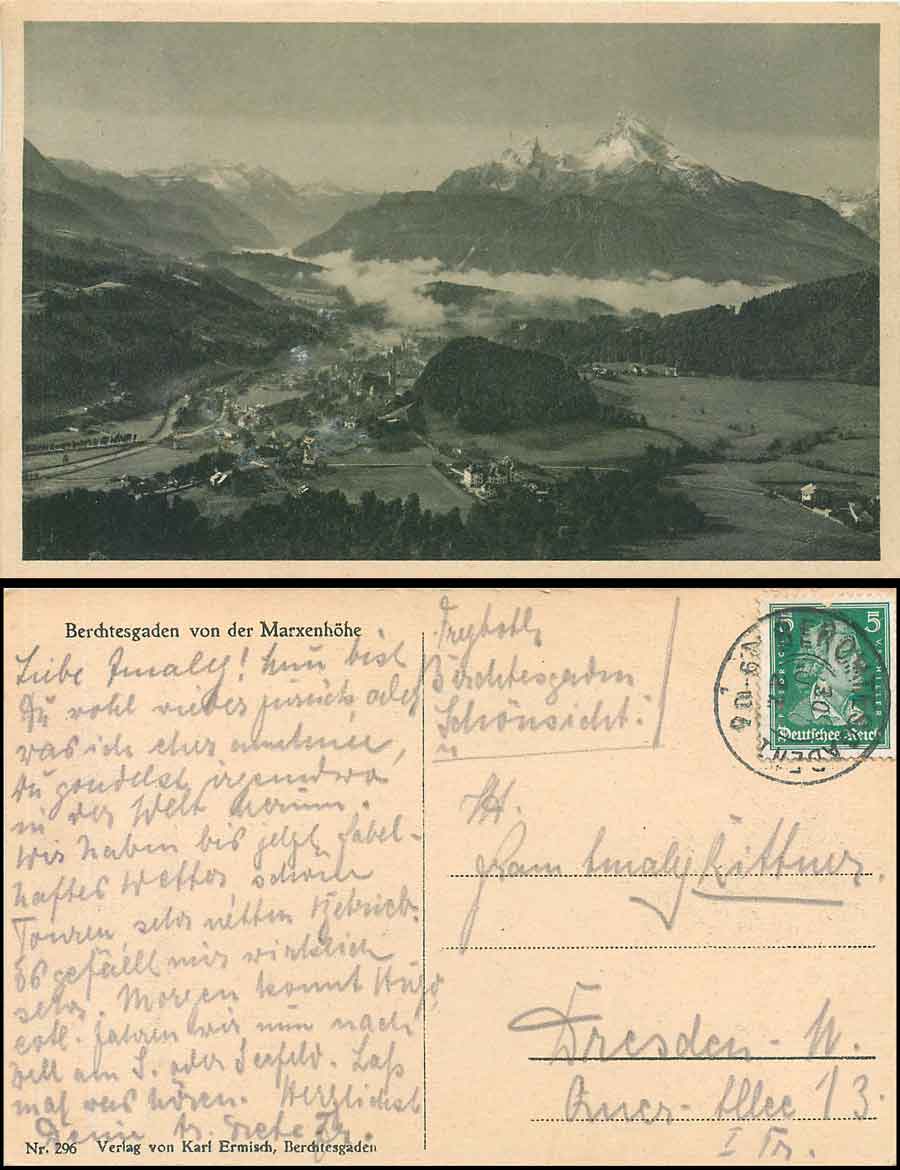 Berchtesgaden von der Marxenhöhe
Liebe Amaly! Nun bist
Du wohl wieder zurück oder
was ich eher annehme,
Du gondelst irgendwo
in der Welt herum.
Wir haben bis jetzt fabel-
haftes Wetter schöne
Touren sehr netten Betrieb.
Es gefällt mir wirklich
sehr. Morgen kommt
evtl. fahren wir nun nach
Zell am S. oder Seefeld. Laß
mal was hören. Herzlichst
Deine Grete
Nr. 296 Verlag von Karl Ermisch, Berchtesgaden
Berchtesgaden
Schönsicht
5 5
FRIEDRICH V. SCHILLER
Deutsches Reich
Frau Amaly Kittner
Dresden - N.
Allee 13
I